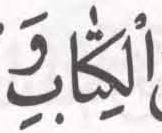 الْكِتٰبِ وَ